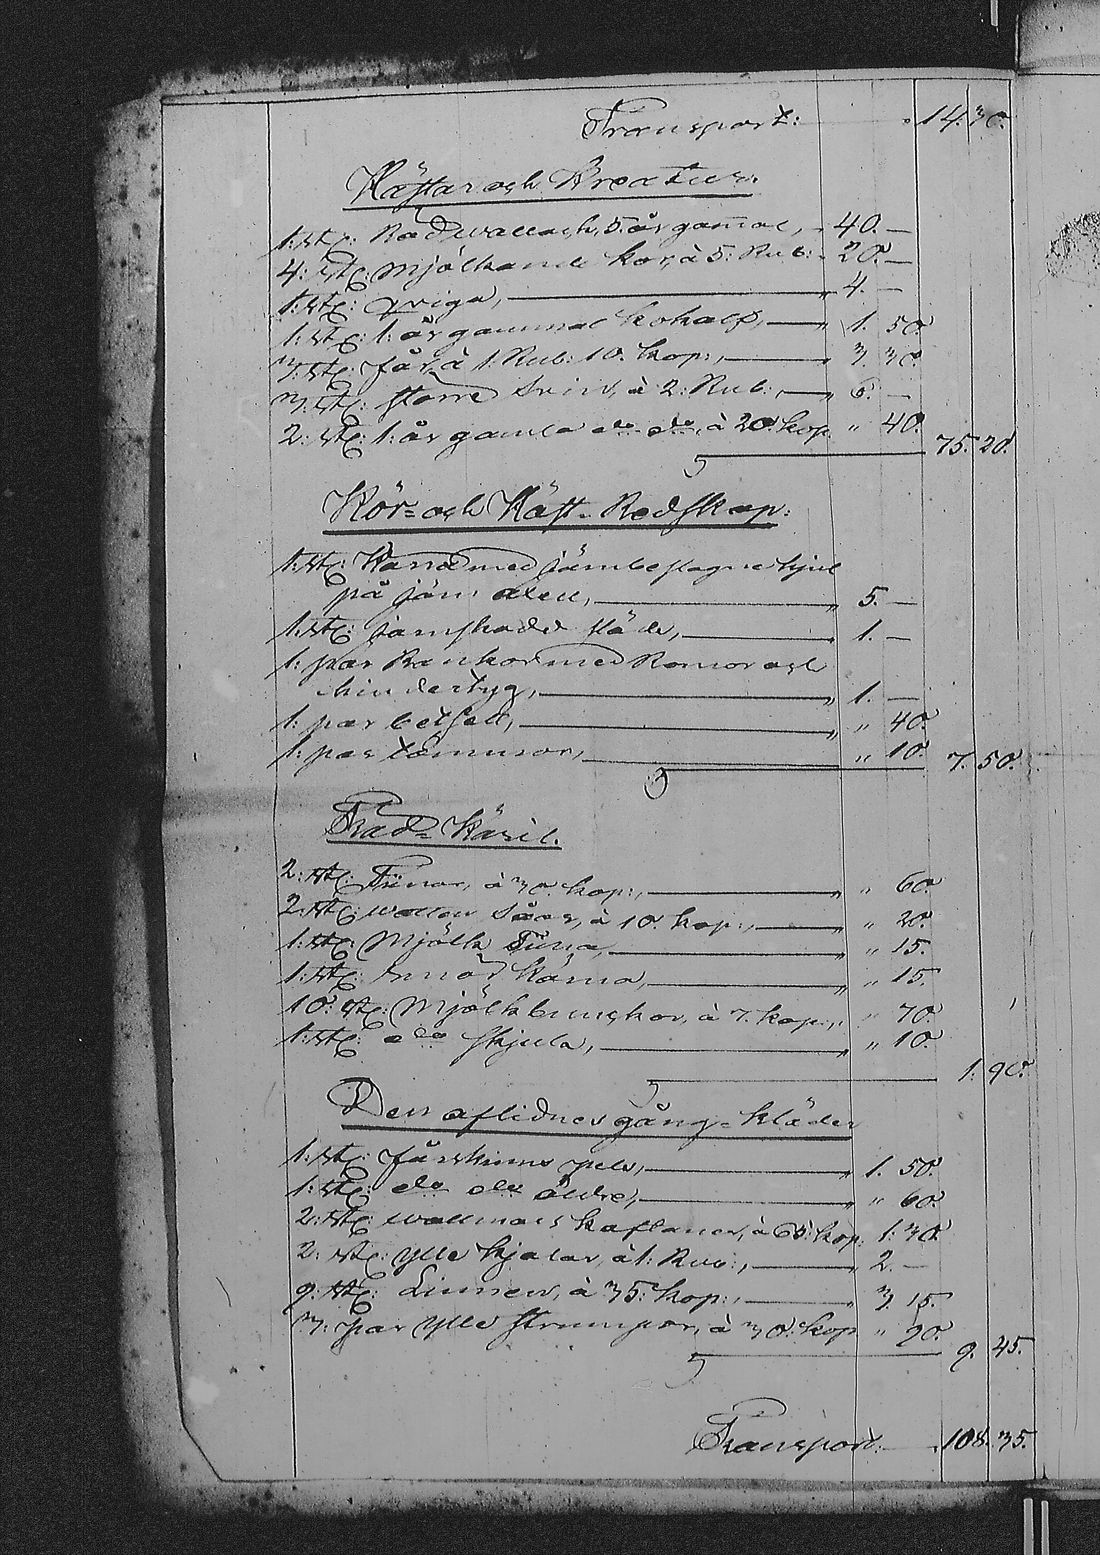 Transport: 14. 30.
Hästar och Kreatur.
1: st: Röd wallach, 5. år gamal, " 40. —
4: st: Mjölkande kor, à 5: Rub: " 20. —
1: st: Qviga, " 4. —
1: st: 1: år gammal kokalf, " 1. 50.
3: st: får, à 1: Rub: 10. kop:, " 3. 30.
3: st: större Svin, à 2: Rub:, " 6. —
2: st: 1: år gamla do do, à 20. kop. " 40.
75. 20.
Kör= och Häst- Redskap:
1: st: Kärra med järnbeslagne hjul
på järn axell, " 5. —
1: st: järnskodd släde, " 1. —
1: par Rankor med Romor och
hindertyg, " 1. —
1: par betsell, " " 40.
1: par tömmar, " 10.
7. 50.
Träd= Käril.
2: st: Tünor, à 30. kop:, " " 60.
2: st: watten Såar, à 10. kop:, " " 20.
1: st: Mjölk Tüna, " " 15.
1: st: Smör Kärna, " " 15.
10: st: Mjölkbunkor, à 7. kop:, " 70.
1: st: do skjula, " " 10.
1. 90.
Den aflidnes gång= kläder
1: st: fårskinns pels, " 1. 50.
1: st: do do äldre, " " 60.
2: st: wallmars kaftaner, à 65: kop: 1. 30.
2: st: ylle kjolar, à 1: Rub:, " 2. —
9: st: Linnen, à 35: kop:, " 3. 15.
3: par ylle strumpor, à 30. kop " 90.
9. 45.
Transport: 108. 35.